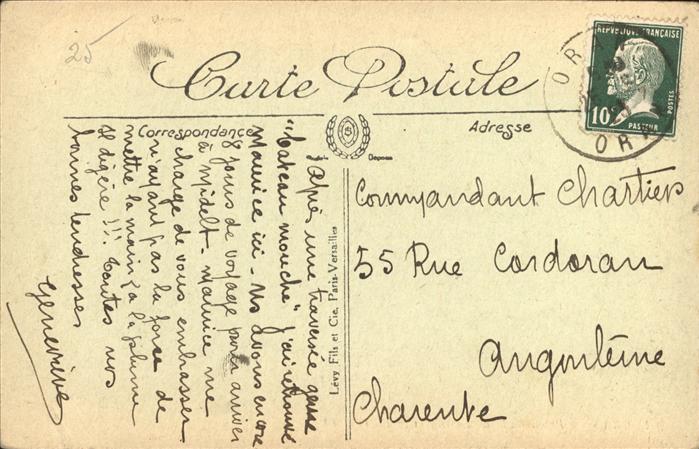 25
Carte Postale
Correspondance
Adresse
REPUBLIQUE FRANÇAISE
10c
POSTES
PASTEUR
ORAN
ORAN
Lévy Fils et Cie, Paris-Versailles
Après une traversée genre
"bateau mouche" j'ai retrouvé
Maurice ici - Ns avons encore
8 jours de voyage pour arriver
à Midelt - Maurice me
charge de vous embrasser
n'ayant pas la force de
mettre la main à la plume
digère !!! Toutes nos
bonnes tendresses
Geneviève
Commandant Chartier
55 Rue Cordoran
Angoulême
Charente